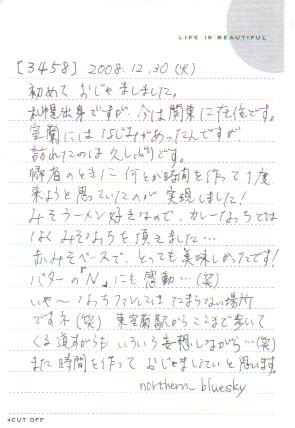 LIFE IS BEAUTIFUL
[3458] 2008.12.30(火)
初めて おじゃましました。
札幌出身ですが、今は関東に在住です。
室蘭には なじみがあったんですが
訪れたのは 久しぶりです。
帰省のときに 何とか時間を作って1度
来ようと思っていたのが 実現しました!
みそラーメン好きなので、カレーならでは
はく みそならを 頂きました…
赤みそベースで、とっても美味しかったです!
バターの「N」にも 感動…(笑)
いや〜 なっちファンには たまらない場所
ですネ(笑) 東室蘭駅からここまで歩いて
くる道すがらも いろいろ妄想しながら…(笑)
また 時間を作って おじゃましたいと思います。
northern bluesky
CUT OFF